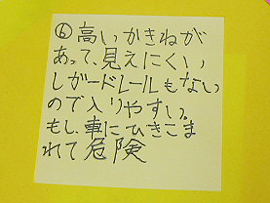 ⑥高いかきねが
あって、見えにくい
しガードレールもない
ので入りやすい。
もし、車にひきこま
れて危険